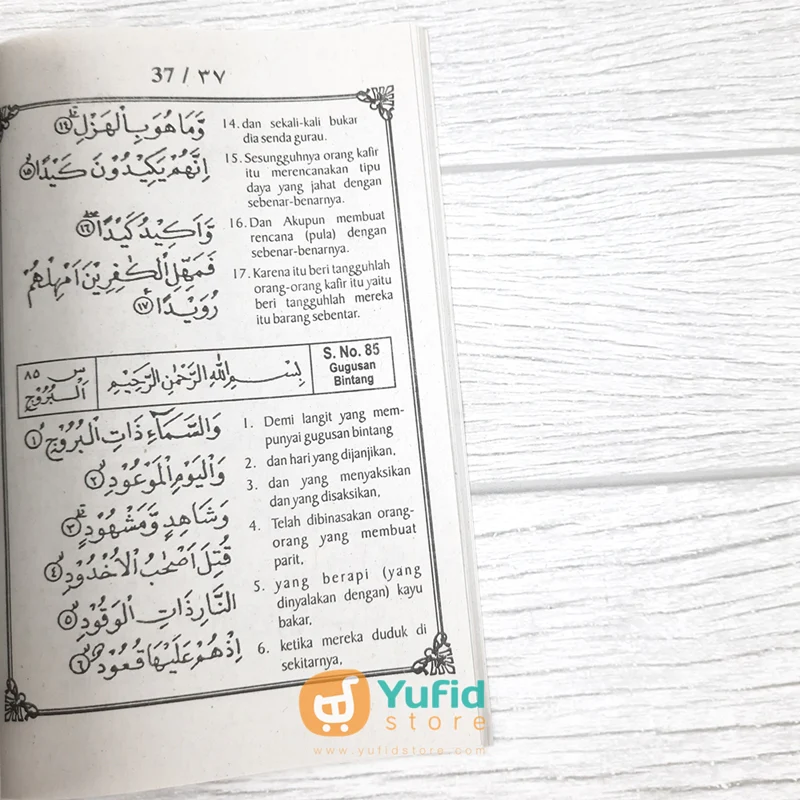 37 / ٣٧
وَّمَا هُوَ بِالْهَزْلِۗ ١٤
14. dan sekali-kali bukan
dia senda gurau.
اِنَّهُمْ يَكِيْدُوْنَ كَيْدًاۙ ١٥
15. Sesungguhnya orang kafir
itu merencanakan tipu
daya yang jahat dengan
sebenar-benarnya.
وَّاَكِيْدُ كَيْدًاۖ ١٦
16. Dan Akupun membuat
rencana (pula) dengan
sebenar-benarnya.
فَمَهِّلِ الْكٰفِرِيْنَ اَمْهِلْهُمْ
رُوَيْدًا ١٧
17. Karena itu beri tangguhlah
orang-orang kafir itu yaitu
beri tangguhlah mereka
itu barang sebentar.
س ٨٥
اَلْبُرُوْجِ
بِسْمِ اللّٰهِ الرَّحْمٰنِ الرَّحِيْمِ
S. No. 85
Gugusan
Bintang
وَالسَّمَآءِ ذَاتِ الْبُرُوْجِۙ ١
1. Demi langit yang mem-
punyai gugusan bintang
وَالْيَوْمِ الْمَوْعُوْدِۙ ٢
2. dan hari yang dijanjikan,
وَشَاهِدٍ وَّمَشْهُوْدٍۗ ٣
3. dan yang menyaksikan
dan yang disaksikan,
قُتِلَ اَصْحٰبُ الْاُخْدُوْدِۙ ٤
4. Telah dibinasakan orang-
orang yang membuat
parit,
النَّارِ ذَاتِ الْوَقُوْدِۙ ٥
5. yang berapi (yang
dinyalakan dengan) kayu
bakar,
اِذْ هُمْ عَلَيْهَا قُعُوْدٌۙ ٦
6. ketika mereka duduk di
sekitarnya,
Yufid
store
www.yufidstore.com